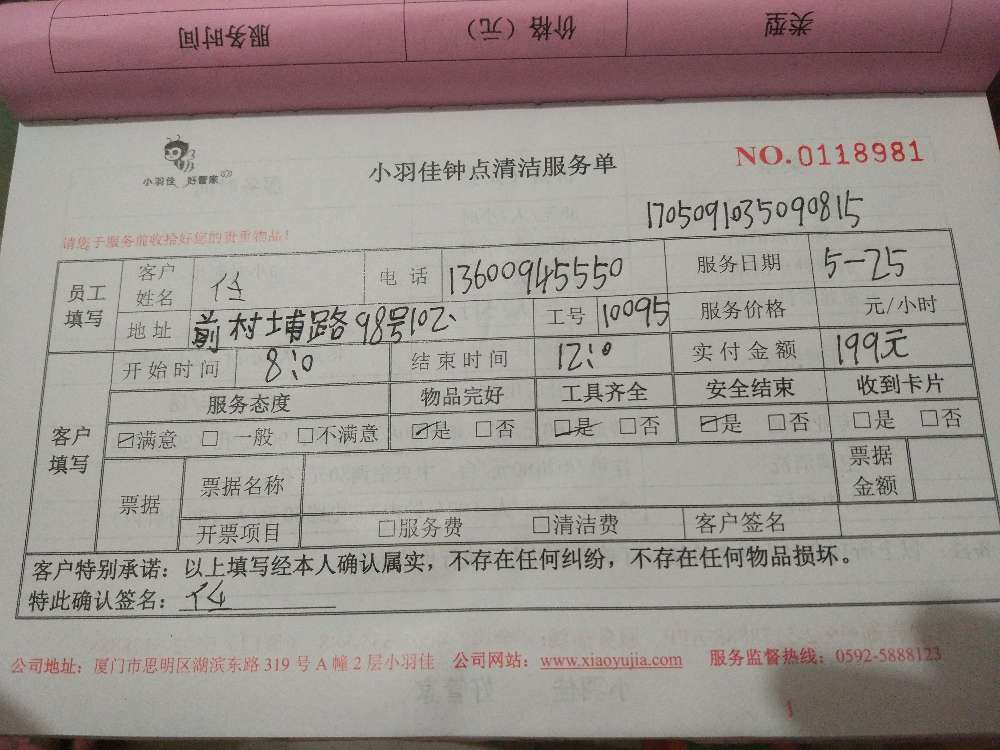 服务时间 价格（元） 类型
小羽佳 好管家
小羽佳钟点清洁服务单
NO.0118981
1705091035090815
请您于服务前收拾好您的贵重物品！
员工填写 客户姓名 任 电话 13600945550 服务日期 5-25
地址 前村埔路98号102 工号 10095 服务价格 元/小时
开始时间 8:0 结束时间 12:0 实付金额 199元
客户填写 服务态度 物品完好 工具齐全 安全结束 收到卡片
☑满意 □一般 □不满意 ☑是 □否 ☑是 □否 ☑是 □否 □是 □否
票据 票据名称 票据金额
开票项目 □服务费 □清洁费 客户签名
客户特别承诺：以上填写经本人确认属实，不存在任何纠纷，不存在任何物品损坏。
特此确认签名：任
公司地址：厦门市思明区湖滨东路319号A幢2层小羽佳 公司网站：www.xiaoyujia.com 服务监督热线：0592-5888123